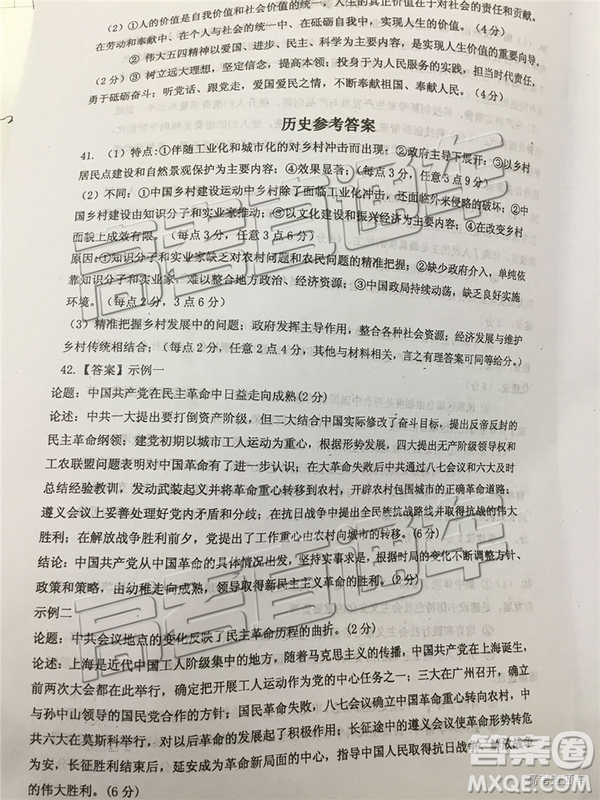 （2）①人的价值是自我价值和社会价值的统一，人生的真正价值在于对社会的责任和贡献。
在劳动和奉献中、在个人与社会的统一中、在砥砺自我中，实现人生的价值。（4分）
② 伟大五四精神以爱国、进步、民主、科学为主要内容，是实现人生价值的重要向导。
（2分）③ 树立远大理想，坚定信念，提高本领；投身于为人民服务的实践，担当时代责任，
勇于砥砺奋斗；听党话、跟党走，爱国爱民之情，不断奉献祖国、奉献人民。（4分）
历史参考答案
41. （1）特点:①伴随工业化和城市化的对乡村冲击而出现；②政府主导下展开；③以乡村
居民点建设和自然景观保护为主要内容；④效果显著；（每点3分，任意3点9分）
（2）不同：①中国乡村建设运动中乡村除了面临工业化冲击，还面临外来侵略的破坏；②中
国乡村建设由知识分子和实业家推动；③以文化建设和振兴经济为主要内容；④在改变乡村
面貌上成效有限。（每点3分，任意3点6分）
原因:①知识分子和实业家缺乏对农村问题和农民问题的精准把握；②缺少政府介入，单纯依
靠知识分子和实业家，难以整合地方政治、经济资源；③中国政局持续动荡，缺乏良好实施
环境。（每点2分，3点6分）
（3）精准把握乡村发展中的问题；政府发挥主导作用，整合各种社会资源；经济发展与维护
乡村传统相结合；（每点2分，任意2点4分）
42.【答案】示例一
论题：中国共产党在民主革命中日益走向成熟(2分)
论述：中共一大提出要打倒资产阶级，但二大结合中国实际修改了奋斗目标，提出反帝反封的
民主革命纲领；建党初期以城市工人运动为重心，根据形势发展，四大提出无产阶级领导权和
工农联盟问题表明对中国革命有了进一步认识；在大革命失败后中共通过八七会议和六大及时
总结经验教训，发动武装起义并将革命重心转移到农村，开辟农村包围城市的正确革命道路；
遵义会议上妥善处理好党内矛盾和分歧；在抗日战争中提出全民族抗战路线并取得抗战的伟大
胜利；在解放战争胜利前夕，党提出了工作重心由农村向城市的转移。(6分)
结论：中国共产党从中国革命的具体情况出发，坚持实事求是，根据时局的变化不断调整方针、
政策和策略，由幼稚走向成熟，领导取得新民主主义革命的胜利。(2分)
示例二
论题：中共会议地点的变化反映了民主革命历程的曲折。(2分)
论述：上海是近代中国工人阶级集中的地方，随着马克思主义的传播，中国共产党在上海诞生，
前两次大会都在上海召开，确定把开展工人运动作为党的中心任务之一；三大在广州召开，确
与孙中山领导的国民党合作的方针；国共合作失败后，八七会议确定中国革命重心转向农村，中
共六大在莫斯科举行，体现了革命环境的残酷和共产国际的影响；长征途中的遵义会议使革命形势转危
长征胜利结束后，延安成为革命新局面的中心，指导中国人民取得抗日战
的伟大胜利。(6分)
高考直通车
答案卷